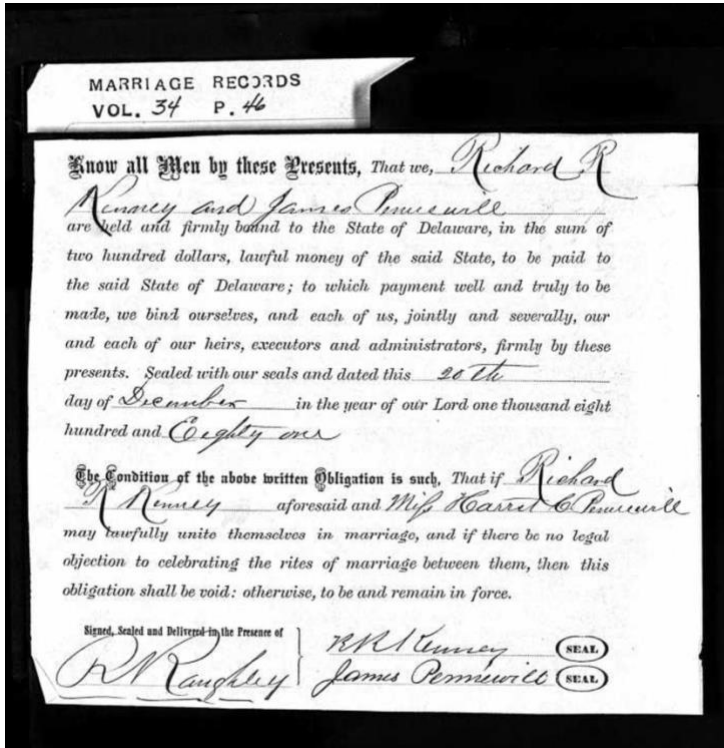 MARRIAGE RECORDS
VOL. 34 P. 46
Know all Men by these Presents, That we, Richard R
Kenney and James Pennewill
are held and firmly bound to the State of Delaware, in the sum of
two hundred dollars, lawful money of the said State, to be paid to
the said State of Delaware; to which payment well and truly to be
made, we bind ourselves, and each of us, jointly and severally, our
and each of our heirs, executors and administrators, firmly by these
presents. Sealed with our seals and dated this 20th
day of December in the year of our Lord one thousand eight
hundred and Eighty one
The Condition of the above written Obligation is such, That if Richard
R Kenney aforesaid and Miss Harriet C Pennewill
may lawfully unite themselves in marriage, and if there be no legal
objection to celebrating the rites of marriage between them, then this
obligation shall be void: otherwise, to be and remain in force.
Signed, Sealed and Delivered in the Presence of
R N Raughley
R R Kenney SEAL
James Pennewill SEAL